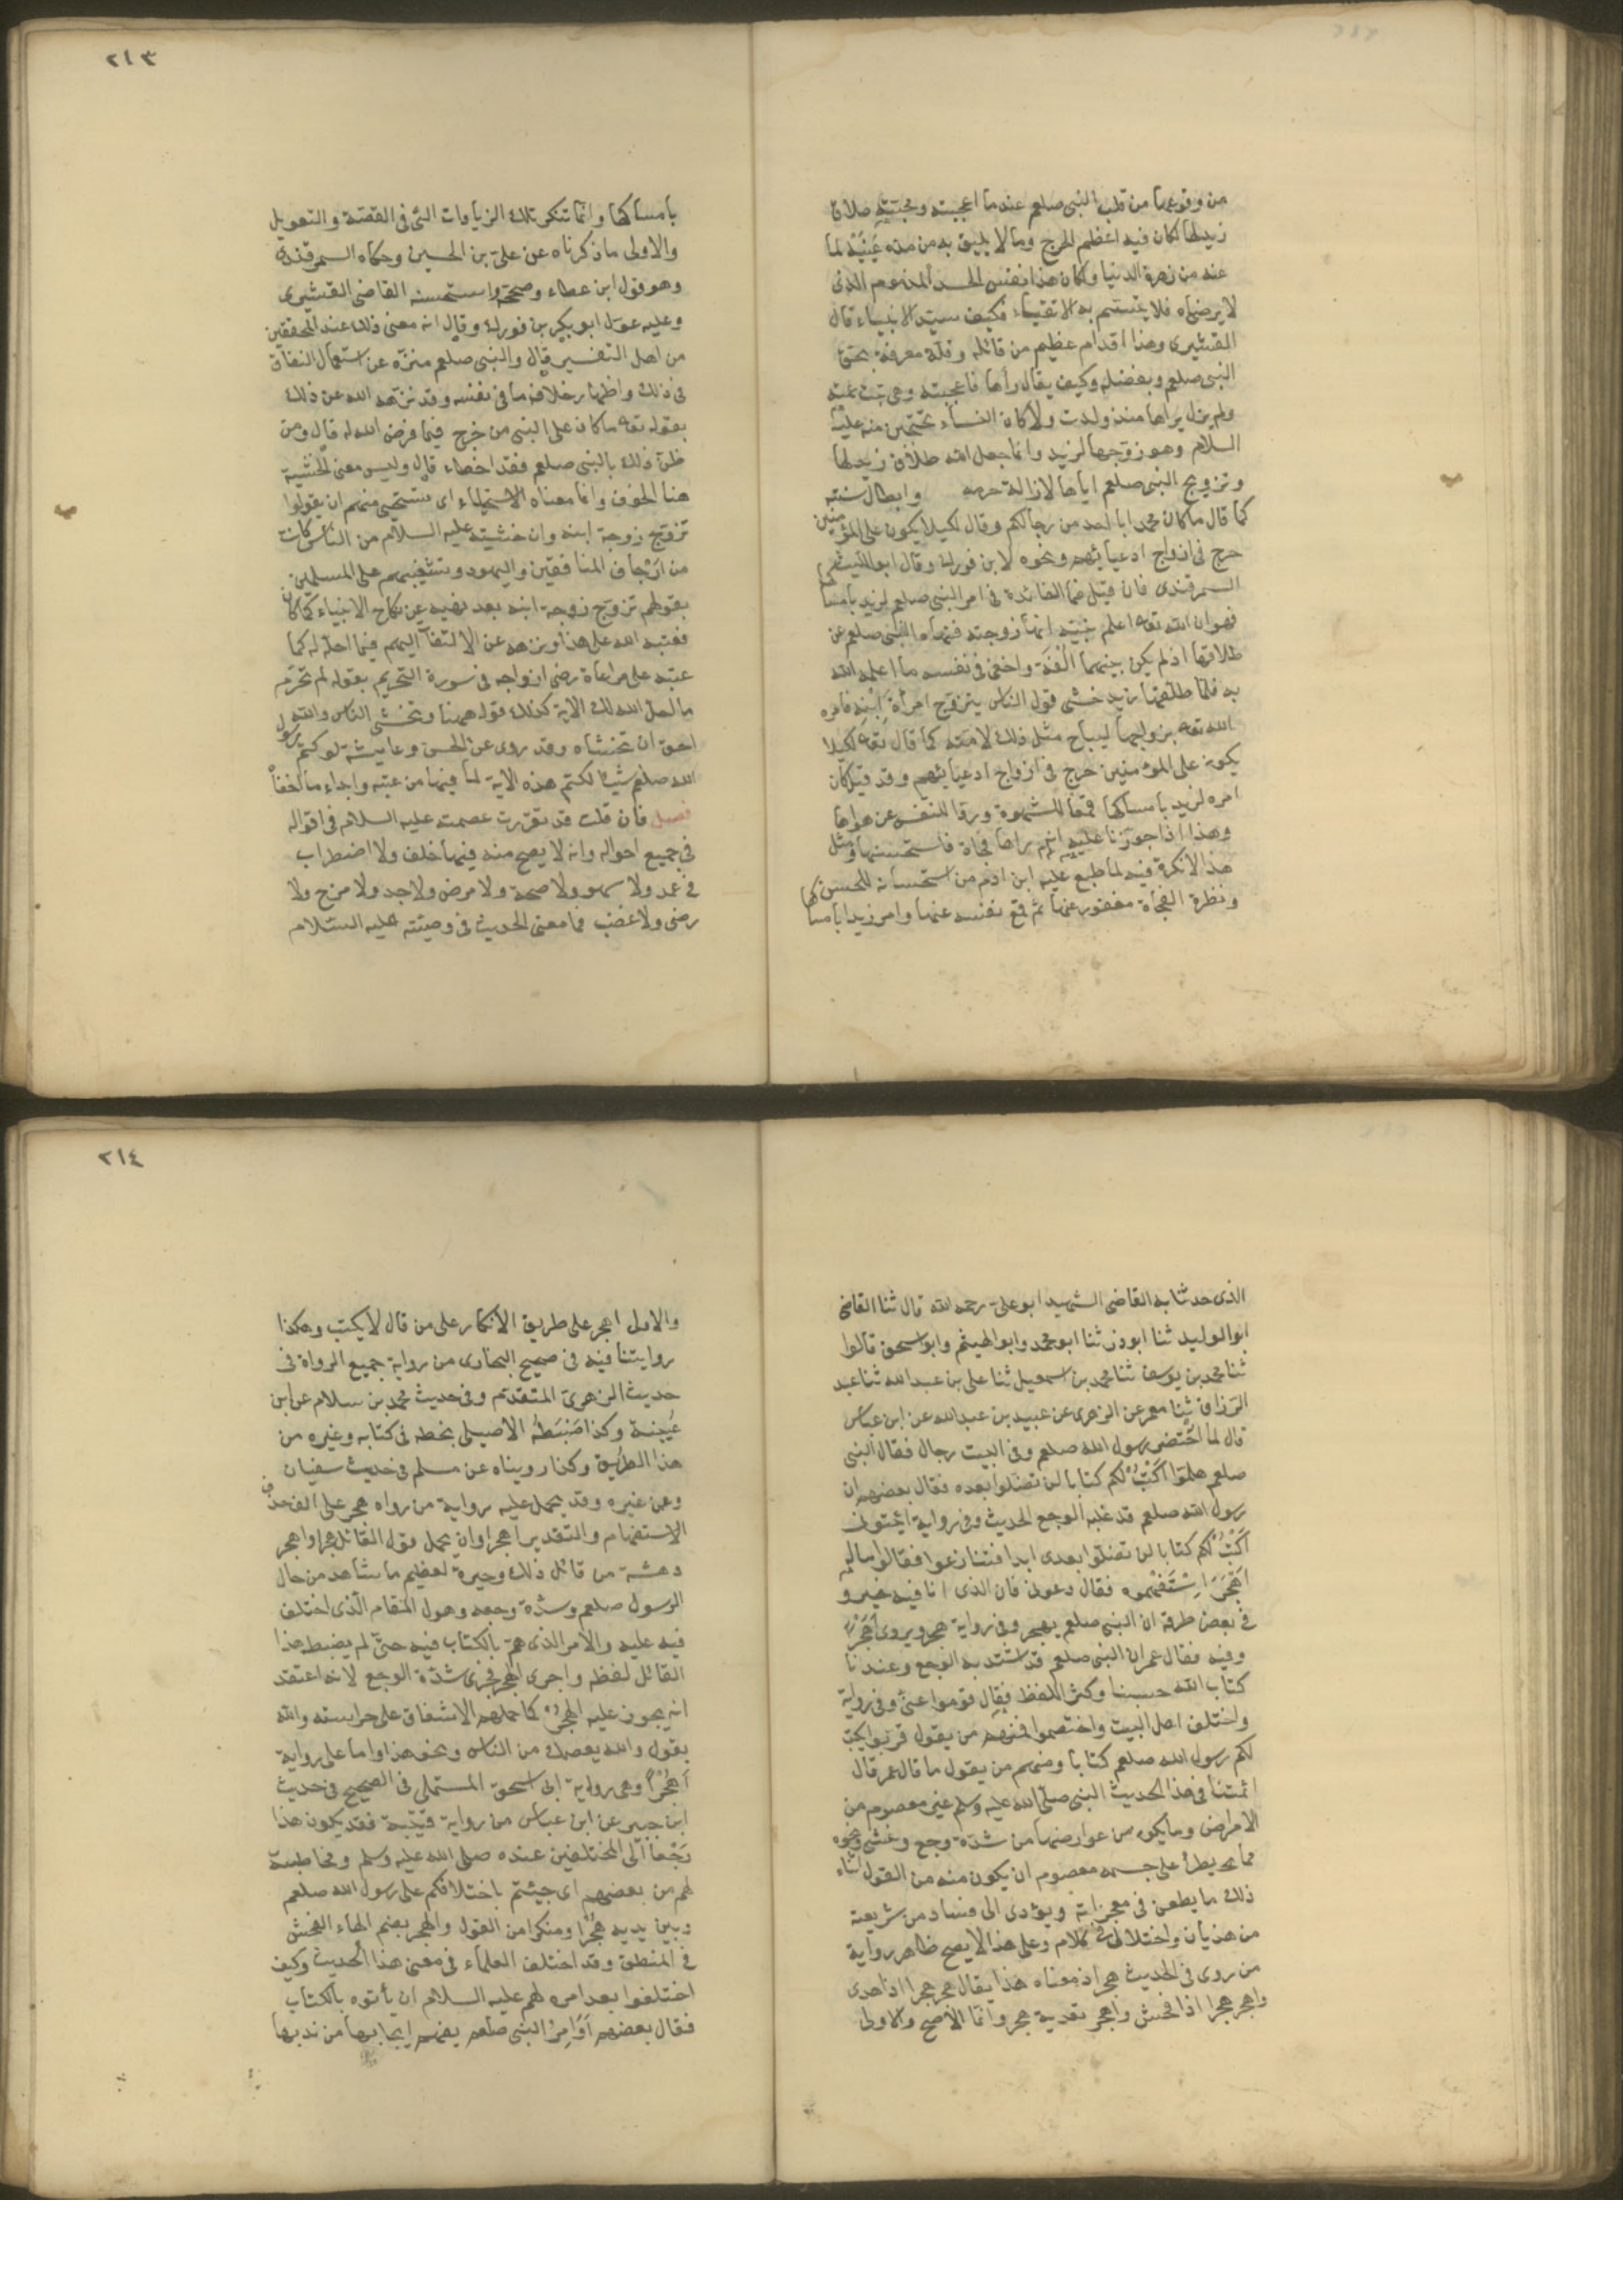 من وقوعها من قلب النبى صلعم عندما اعجبته ومحبته طلاق
زيد لها لكان فيه اعظم الحرج وما لا يليق به من مده عَيْنَيْه لما
عنه من زهرة الدنيا ولكان هذا نفس الحسد المذموم الذى
لا يرضاه فلا يتسم به الاتقياء فكيف سيد الانبياء قال
القشيرى وهذا اقدام عظيم من قائله وقلة معرفة بحق
النبى صلعم وبفضله وكيف يقال رأها فاعجبته وهى بنت عمته
ولم يزل يراها منذ ولدت ولا كان النساء يحتجبن منه عليه
السلام وهو زوجها لزيد وانما جعل الله طلاق زيد لها
وتزويج النبى صلعم اياها لازالة حرمة وابطال سنته
كما قال ما كان محمد ابا احد من رجالكم وقال لكيلا يكون على المؤمنين
حرج فى ازواج ادعيائهم ونحوه لابن فورك وقال ابو الليث
السمرقندى فان قيل فما الفائدة فى امر النبى صلعم لزيد بامساكها
فهو ان الله تعه اعلم نبيه انها زوجته فنهاه النبى صلعم عن
طلاقها اذ لم يكن بينهما الفة واخفى فى نفسه ما اعلمه الله
به فلما طلقها زيد خشى قول الناس يتزوج امرأة ابنه فامره
الله تعه بزواجها ليباح مثل ذلك لامته كما قال تعه لكيلا
يكون على المؤمنين حرج فى ازواج ادعيائهم وقد قيل كان
امره لزيد بامساكها قمعا للشهوة وردا للنفس عن هواها
وهذا اذا جوزنا عليه انه راها فجاة فاستحسنها ومثل
هذا لا نكرة فيه لما طبع عليه ابن ادم من استحسانه للحسن
ونظرة الفجاة معفو عنها ثم قمع نفسه عنها وامر زيدا بامساكها
٢١٣
بامساكها وانما تنكر تلك الزيادات التى فى القصة والتعويل
والاولى ما ذكرناه عن على بن الحسين وحكاه السمرقندى
وهو قول ابن عطاء وصححه واستحسنه القاضى القشيرى
وعليه عول ابو بكر بن فورك وقال انه معنى ذلك عند المحققين
من اهل التفسير قال والنبى صلعم منزه عن استعمال النفاق
فى ذلك واظهار خلاف ما فى نفسه وقد نزهه الله عن ذلك
بقوله تعه ما كان على النبى من حرج فيما فرض الله له قال ومن
ظن ذلك بالنبى صلعم فقد اخطاء قال وليس معنى الخشية
هنا الخوف وانما معناه الاستحياء اى يستحيى منهم ان يقولوا
تزوج زوجة ابنه وان خشيته عليه السلام من الناس كانت
من ارجاف المنافقين واليهود وتشغيبهم على المسلمين
بقولهم تزوج زوجة ابنه بعد نهيه عن نكاح الابنياء كما كان
فعتبه الله على هذا ونزهه عن الالتفات اليهم فيما احله له كما
عتبه على مراعاة رضى ازواجه فى سورة التحريم بقوله لم تحرم
ما احل الله لك الاية كذلك قوله ههنا وتخشى الناس والله
احق ان تخشاه وقد روى عن الحسن وعايشة لو كتم رسول
الله صلعم شيا لكتم هذه الاية لما فيها من عتبه وابداء ما اخفاه
فصل فان قلت قد تقررت عصمته عليه السلام فى اقواله
فى جميع احواله وانه لا يصح منه فيها خلف ولا اضطراب
فى عمد ولا سهو ولا صحة ولا مرض ولا جد ولا مزح ولا
رضى ولا غضب فما معنى الحديث فى وصيته عليه السلام
الذى حدثنا به القاضى الشهيد ابو على رحمه الله قال ثنا القاضى
ابو الوليد ثنا ابو ذر ثنا ابو محمد وابو الهيثم وابو اسحق قالوا
ثنا محمد بن يوسف ثنا محمد بن اسمعيل ثنا على بن عبد الله ثنا عبد
الرزاق ثنا معمر عن الزهرى عن عبيد بن عبد الله عن ابن عباس
قال لما احتضر رسول الله صلعم وفى البيت رجال فقال النبى
صلعم هلموا اكتب لكم كتابا لن تضلوا بعده فقال بعضهم ان
رسول الله صلعم قد غلبه الوجع الحديث وفى رواية ايتونى
اكتب لكم كتابا لن تضلوا بعدى ابدا فتنازعوا فقالوا ماله
اهجر استفهموه فقال دعونى فان الذى انا فيه خير و
فى بعض طرقه ان النبى صلعم يهجر وفى رواية هجر ويروى اهجر
وفيه فقال عمر ان النبى صلعم قد اشتد به الوجع وعندنا
كتاب الله حسبنا وكثر اللغط فقال قوموا عنى وفى رواية
واختلف اهل البيت واختصموا فمنهم من يقول قربوا يكتب
لكم رسول الله صلعم كتابا ومنهم من يقول ما قال عمر قال
ائمتنا فى هذا الحديث النبى صلى الله عليه وسلم غير معصوم من
الامراض وما يكون من عوارضها من شدة وجع وغشى ونحوه
مما يطرأ على جسمه معصوم ان يكون منه من القول اثناء
ذلك ما يطعن فى معجزاته ويؤدى الى فساد من شريعته
من هذيان واختلال فى كلام وعلى هذا لا يصح ظاهر رواية
من روى فى الحديث هجر اذ معناه هذا يقال هجر هجرا اذا هدى
واهجر هجرا اذا فحش واهجر تعدية هجر وانما الاصح والاولى
٢١٤
والاول اهجر على طريق الانكار على من قال لا يكتب وهكذا
روايتنا فيه فى صحيح البخارى من رواية جميع الرواة فى
حديث الزهرى المتقدم وفى حديث محمد بن سلام عن ابن
عيينة وكذا ضبطه الاصيلى بخطه فى كتابه وغيره من
هذا الطريق وكذا رويناه عن مسلم فى حديث سفيان
وعن غيره وقد يحمل عليه رواية من رواه هجر على حذف الف
الاستفهام والتقدير اهجر او ان يحمل قول القائل هجر او اهجر
دهشة من قائل ذلك وحيرة لعظيم ما شاهد من حال
الرسول صلعم وشدة وجعه وهول المقام الذى اختلف
فيه عليه والامر الذى هم بالكتاب فيه حتى لم يضبط هذا
القائل لفظه واجرى الهجر مجرى شدة الوجع لا انه اعتقد
انه يجوز عليه الهجر كما حملهم الاشفاق على حراسته والله
يقول والله يعصمك من الناس ونحو هذا واما على رواية
اهجرا وهى رواية ابى اسحق المستملى فى الصحيح فى حديث
ابن جبير عن ابن عباس من رواية قتيبة فقد يكون هذا
رجعا الى المختلفين عنده صلى الله عليه وسلم ومخاطبة
لهم من بعضهم اى جيتم باختلافكم على رسول الله صلعم
وبين يديه هجرا ومنكرا من القول والهجر بضم الهاء الفحش
فى المنطق وقد اختلف العلماء فى معنى هذا الحديث وكيف
اختلفوا بعد امره لهم عليه السلام ان يأتوه بالكتاب
فقال بعضهم اوامر النبى صلعم يفهم ايجابها من ندبها